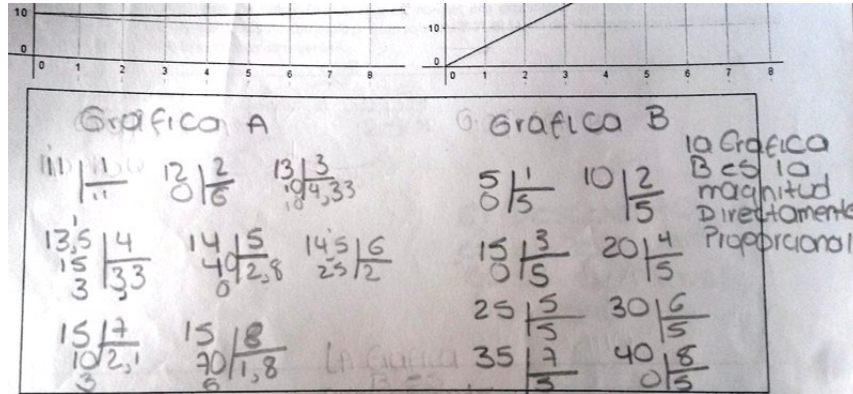 10
0
0 1 2 3 4 5 6 7 8
10
0
0 1 2 3 4 5 6 7 8
Grafica A
11 | 1
11
12 | 2
0 6
13 | 3
10 4,33
10
13,5 | 4
15 3,3
3
14 | 5
40 2,8
0
14,5 | 6
25 2
15 | 7
10 2,1
3
15 | 8
70 1,8
6
Grafica B
5 | 1
0 5
10 | 2
5
15 | 3
0 5
20 | 4
5
25 | 5
5
30 | 6
5
35 | 7
5
40 | 8
0 5
la Grafica
B es la
magnitud
Directamente
Proporcional
LA Grafica
B es